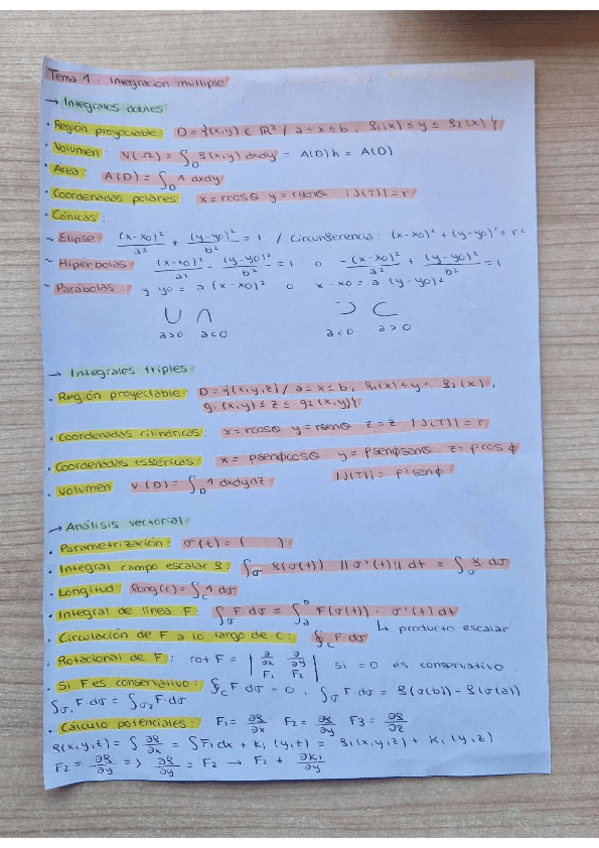 Tema 1: Integración multiple
→ Integrales dobles
· Región proyectable D = {(x,y) ∈ ℝ² / a ≤ x ≤ b, f₁(x) ≤ y ≤ f₂(x)}
· Volumen: V(Ω) = ∫_D f(x,y) dxdy = A(D)h = A(D)
· Área: A(D) = ∫_D 1 dxdy
· Coordenadas polares: x = rcosθ y = rsenθ |J(T)| = r
· Cónicas:
~ Elipse (x-x0)²/a² + (y-y0)²/b² = 1 / Circunferencia: (x-x0)² + (y-y0)² = r²
~ Hipérbolas (x-x0)²/a² - (y-y0)²/b² = 1 o -(x-x0)²/a² + (y-y0)²/b² = 1
~ Parábolas: y-y0 = a(x-x0)² o x-x0 = a(y-y0)²
a>0 a<0 a<0 a>0
→ Integrales triples
· Región proyectable D = {(x,y,z) / a ≤ x ≤ b, f₁(x) ≤ y ≤ f₂(x),
g₁(x,y) ≤ z ≤ g₂(x,y)}
· Coordenadas cilíndricas: x = rcosθ y = rsenθ z = z |J(T)| = r
· Coordenadas esféricas x = ρsenϕcosθ y = ρsenϕsenθ z = ρcosϕ
· Volumen V(D) = ∫_D 1 dxdydz |J(T)| = ρ²senϕ
→ Análisis vectorial
· Parametrización: σ(t) = ( )
· Integral campo escalar f: ∫_σ f(σ(t)) · ||σ'(t)|| dt = ∫_σ f dσ
· Longitud long(c) = ∫_C 1 dσ
· Integral de línea F: ∫_σ F dσ = ∫_a^b F(σ(t)) · σ'(t) dt
· Circulación de F a lo largo de C: ∮_C F dσ ↳ producto escalar
· Rotacional de F: rot F = | ∂/∂x ∂/∂y ; F₁ F₂ | si = 0 es conservativo
· Si F es conservativo: ∮_C F dσ = 0, ∫_σ F·dσ = f(σ(b)) - f(σ(a))
∫_σ₁ F·dσ = ∫_σ₂ F·dσ
· Cálculo potenciales: F₁ = ∂f/∂x F₂ = ∂f/∂y F3 = ∂f/∂z
f(x,y,z) = ∫ ∂f/∂x = ∫F₁dx + K₁(y,z) = f₁(x,y,z) + K₁(y,z)
F₂ = ∂f/∂y => ∂f/∂y = F₂ → F₂ + ∂K₁/∂y